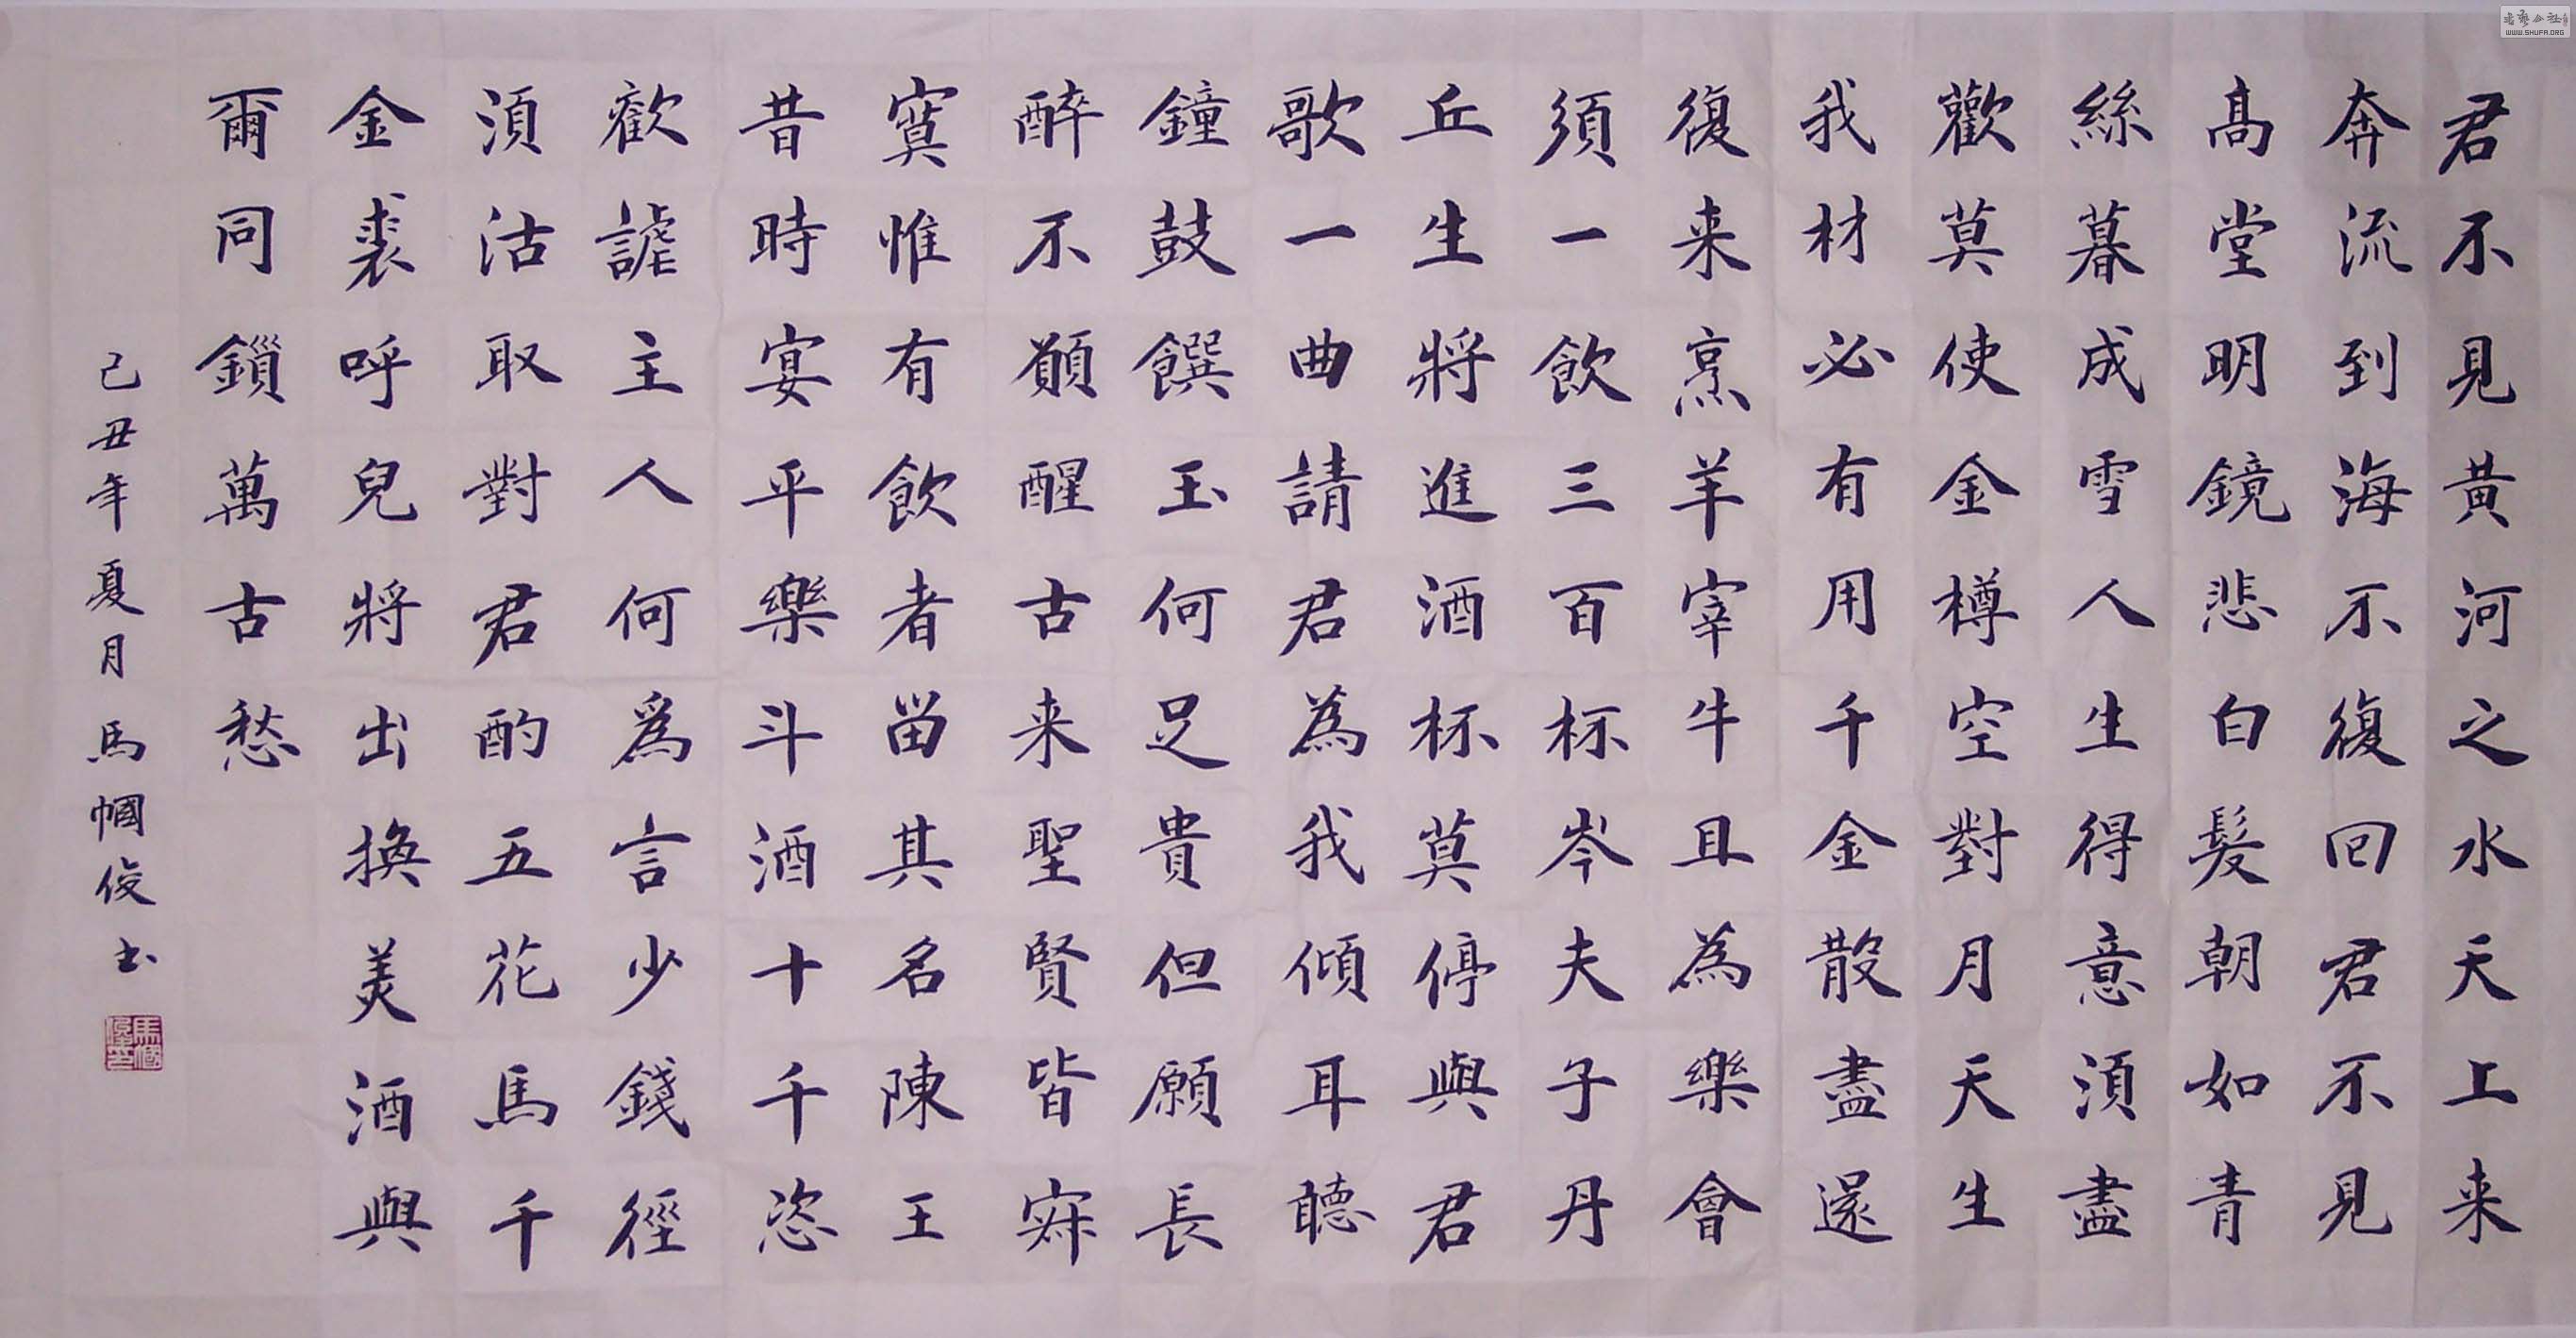 君不見黃河之水天上来
奔流到海不復回君不見
髙堂明鏡悲白髮朝如青
絲暮成雪人生得意湏盡
歡莫使金樽空對月天生
我材必有用千金散盡還
復来烹羊宰牛且為樂會
須一飲三百杯岑夫子丹
丘生將進酒杯莫停與君
歌一曲請君為我傾耳聽
鐘鼓饌玉何足貴但願長
醉不願醒古来聖賢皆寂
寞惟有飲者留其名陳王
昔時宴平樂斗酒十千恣
歡謔主人何為言少錢徑
湏沽取對君酌五花馬千
金裘呼兒將出換美酒與
爾同鎖萬古愁
己丑年夏月馬幗俊书
WWW.SHUFA.ORG